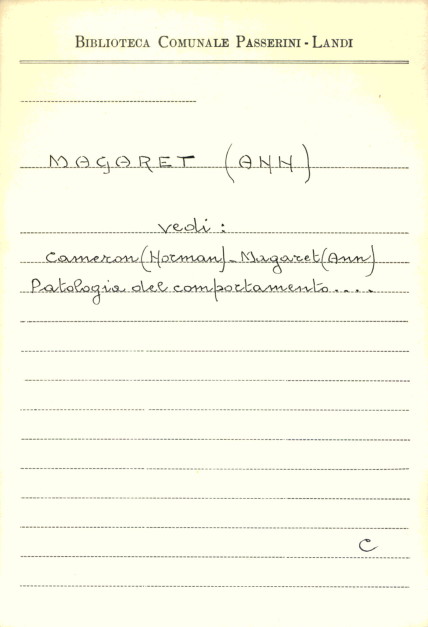 BIBLIOTECA COMUNALE PASSERINI - LANDI
MAGARET (ANN)
vedi :
Cameron (Norman) - Magaret (Ann)
Patologia del comportamento....
C